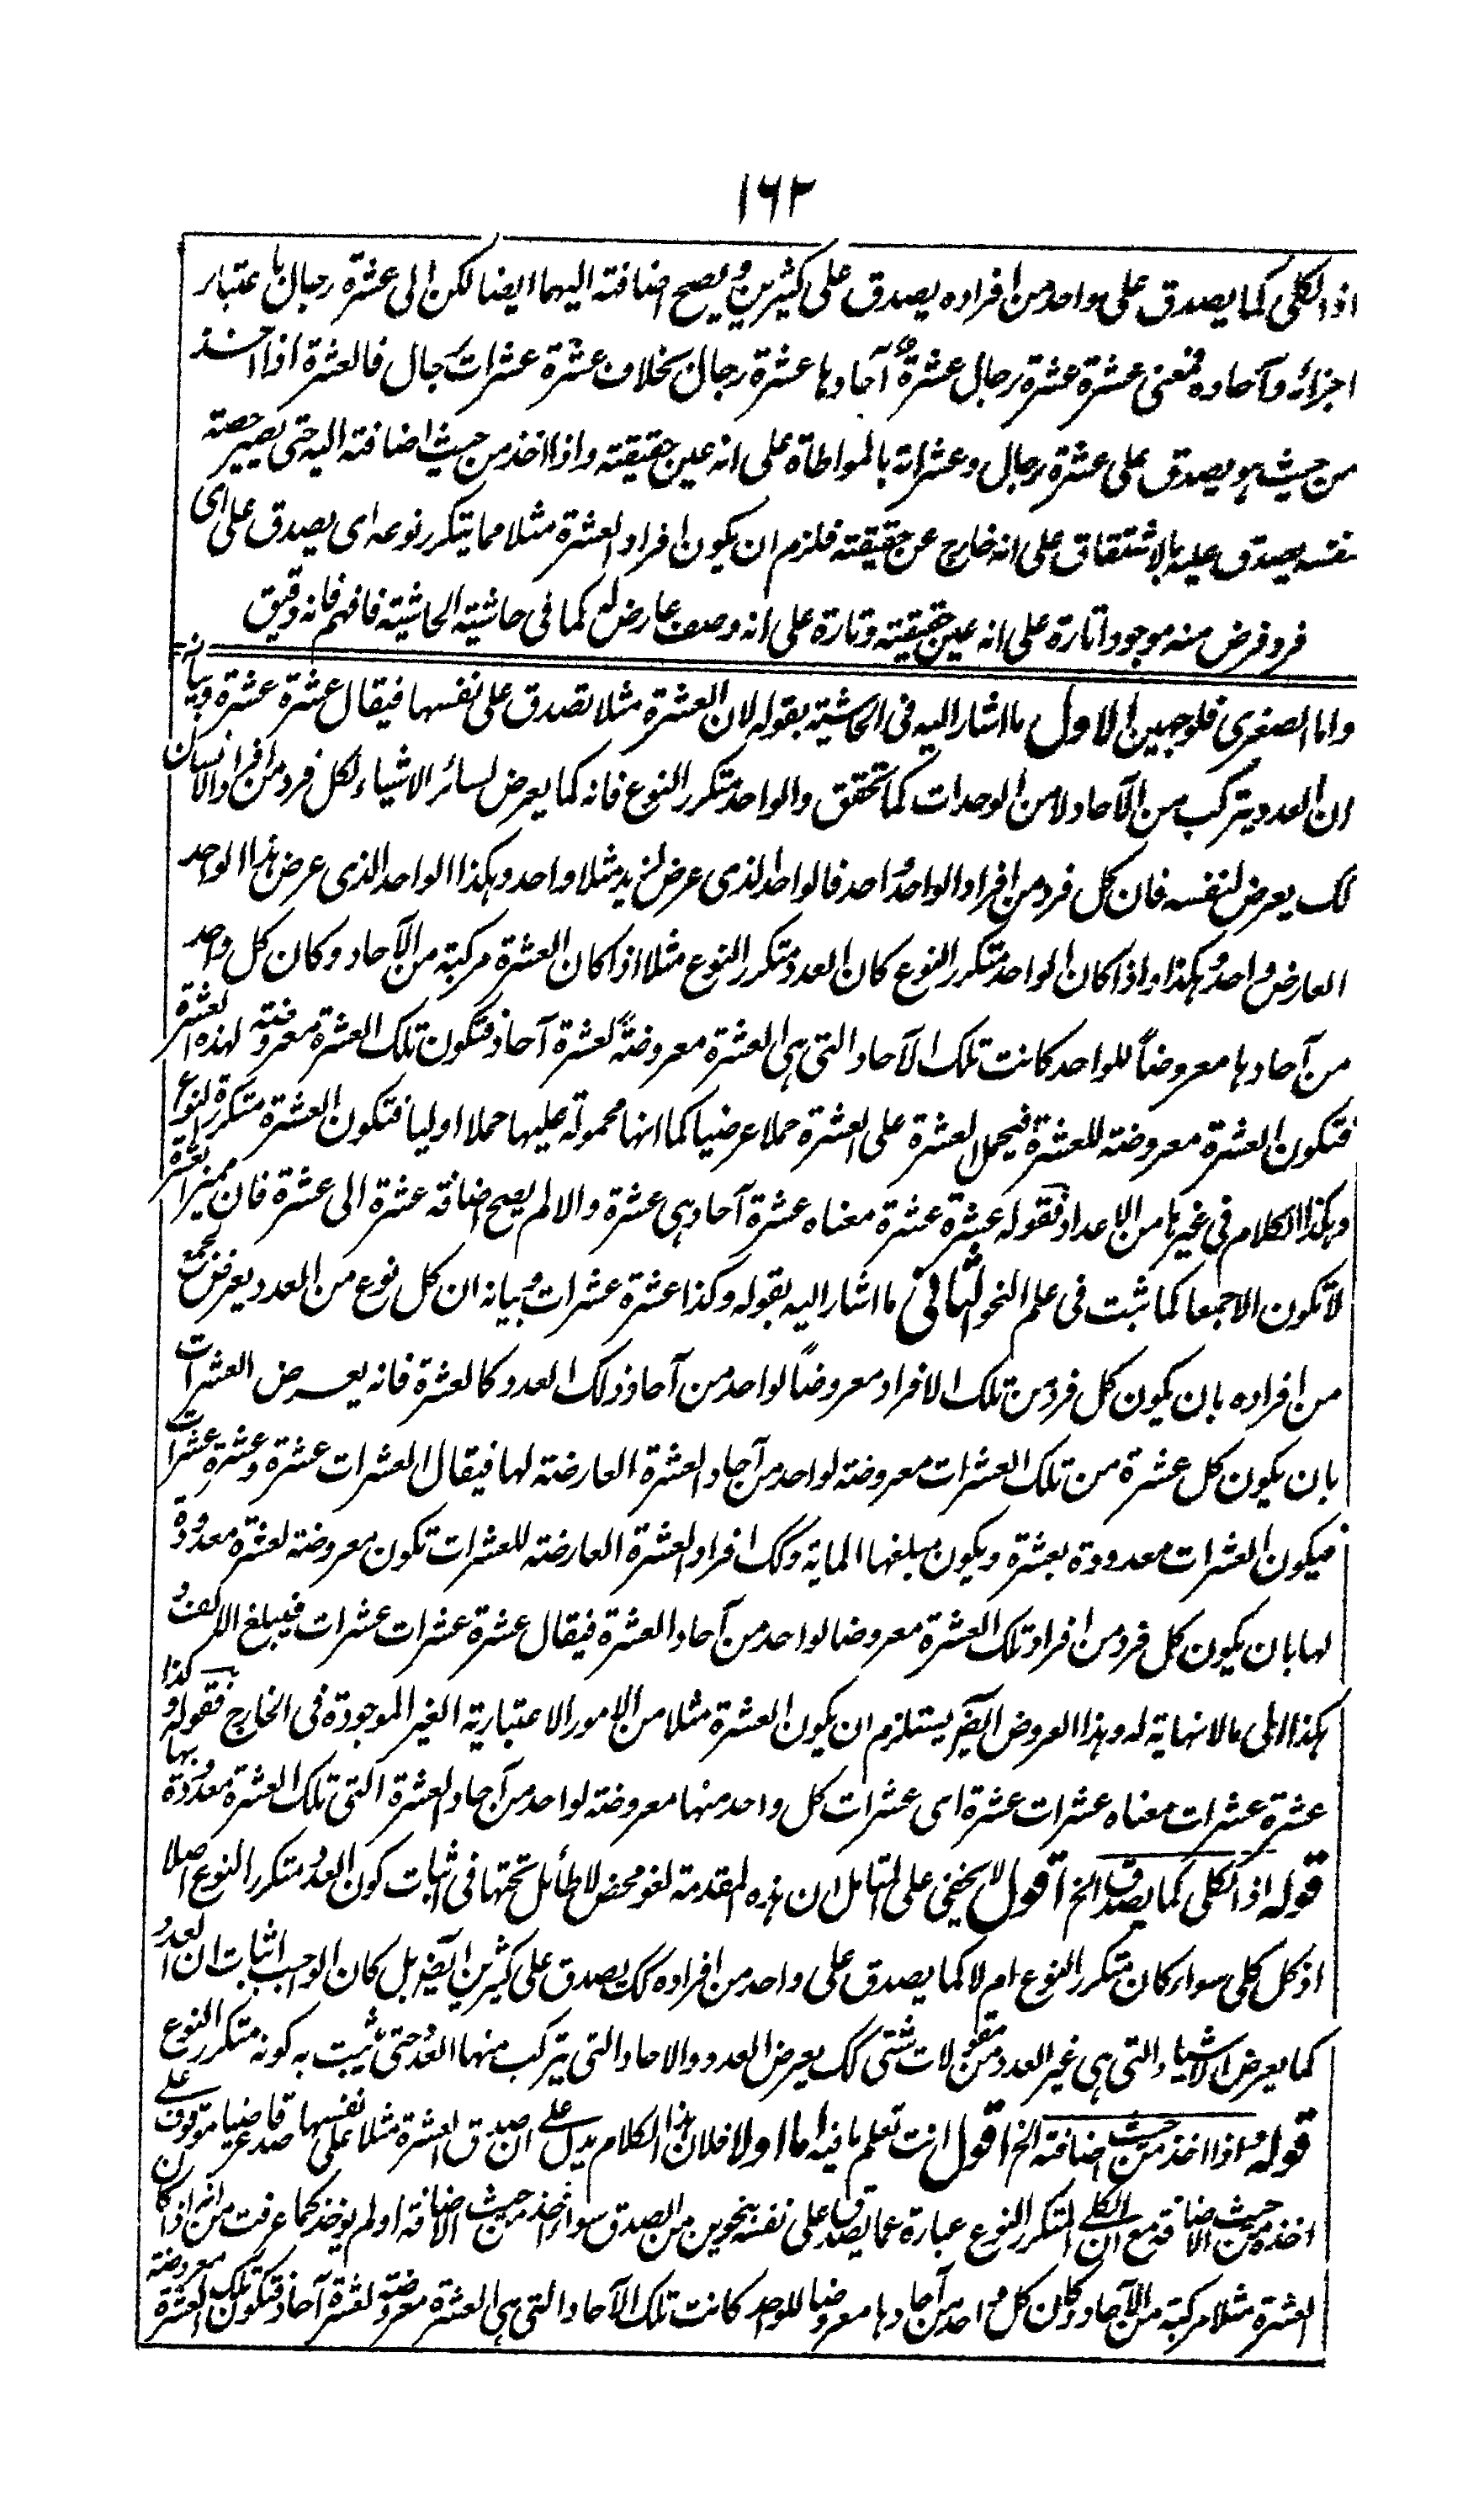 ١٦٢
اذ الكلى كما يصدق على واحد من افراده يصدق على كثيرين ويصح اضافته اليهما ايضا لكن الى عشرة رجال باعتبار
اجزائه وآحاده فمعنى عشرة عشرة رجال عشرة آحادها عشرة رجال بخلاف عشرة عشرات رجال فالعشرة اذا اخذ
من حيث هو يصدق على عشرة رجال وعشراته بالمواطاة على انه عين حقيقته واذا اخذ من حيث اضافته اليه حتى يصير حصته
نفسه يصدق عليه بالاشتقاق على انه خارج عن حقيقته فلزم ان يكون افراد العشرة مثلا مما يتكرر نوعه اى يصدق على اى
فرد فرض منه موجودا تارة على انه عين حقيقته وتارة على انه وصف عارض له كما فى حاشية الحاشية فافهم فانه دقيق
واما الصغرى فلوجهين الاول ما اشار اليه فى الحاشية بقوله لان العشرة مثلا تصدق على نفسها فيقال عشرة عشرة وبيانه
ان العدد يتركب من الآحاد لا من الوحدات كما تحقق والواحد متكرر النوع فانه كما يعرض لسائر الاشياء لكل فرد من افراد الانسان
كك يعرض لنفسه فان كل فرد من افراد الواحد واحد فالواحد الذى عرض لزيد مثلا واحد وهكذا الواحد الذى عرض هذا الواحد
العارض واحد وهكذا واذا كان الواحد متكرر النوع كان العدد متكرر النوع مثلا اذا كان العشرة مركبة من الآحاد وكان كل واحد
من آحادها معروضاً للواحد كانت تلك الآحاد التى هى العشرة معروضةً لعشرة آحاد فتكون تلك العشرة معروضة لهذه العشرة
فتكون العشرة معروضة للعشرة فيحمل العشرة على العشرة حملا عرضيا كما انها محمولة عليها حملا اوليا فتكون العشرة متكررة النوع
وهكذا الكلام فى غيرها من الاعداد فقوله عشرة عشرة معناه عشرة آحاد هى عشرة والا لم يصح اضافة عشرة الى عشرة فان مميز العشرة
لا تكون الا جمعا كما ثبت فى علم النحو الثانى ما اشار اليه بقوله وكذا عشرة عشرات وبيانه ان كل نوع من العدد يعرض لجمع
من افراده بان يكون كل فرد من تلك الافراد معروضاً لواحد من آحاد ذلك العدد كالعشرة فانه يعرض العشرات
بان يكون كل عشرة من تلك العشرات معروضة لواحد من آحاد العشرة العارضة لها فيقال العشرات عشرة وعشرة عشرات
فيكون العشرات معدودة بعشرة ويكون مبلغها الماية وكك افراد العشرة العارضة للعشرات تكون معروضة لعشرة معدودة
لها بان يكون كل فرد من افراد تلك العشرة معروضا لواحد من آحاد العشرة فيقال عشرة عشرات عشرات فيبلغ الالف و
هكذا الى ما لا نهاية له وهذا العروض ايضا يستلزم ان يكون العشرة مثلا من الامور الاعتبارية الغير الموجودة فى الخارج فقوله وكذا
عشرة عشرات معناه عشرات عشرة اى عشرات كل واحد منها معروضة لواحد من آحاد العشرة التى تلك العشرة معدودة بها
قوله اذ الكلى كما يصدق الخ اقول لا يخفى على المتامل ان هذه المقدمة لغو محض لا طائل تحتها فى اثبات كون العدد متكرر النوع اصلا
اذ كل كلى سواء كان متكرر النوع ام لا كما يصدق على واحد من افراده كك يصدق على كثيرين ايضا بل كان الواجب اثبات ان العدد
كما يعرض الاشياء التى هى غير العدد من مقولات شتى كك يعرض العدد والآحاد التى يتركب منها العدد حتى يثبت به كونه متكرر النوع
قوله واذا اخذ من حيث اضافته الخ اقول انت تعلم ما فيه اما اولا فلان هذا الكلام يدل على ان صدق العشرة مثلا على نفسها صدقا عرضيا موقوف على
اخذه من حيث الاضافة مع ان الكلى المتكرر النوع عبارة عما يصدق على نفسه بنحوين من الصدق سواء اخذ من حيث الاضافة او لم يؤخذ كما عرفت من انه اذا كان
العشرة مثلا مركبة من الآحاد وكان كل واحد من آحادها معروضا للواحد كانت تلك الآحاد التى هى العشرة معروضة لعشرة آحاد فتكون تلك العشرة معروضة